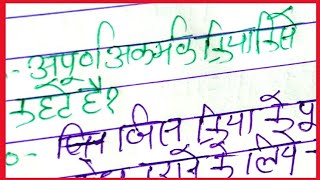 - अपूर्ण अकर्मक क्रिया किसे
कहते है?
जिस क्रिया के पू
के लिये